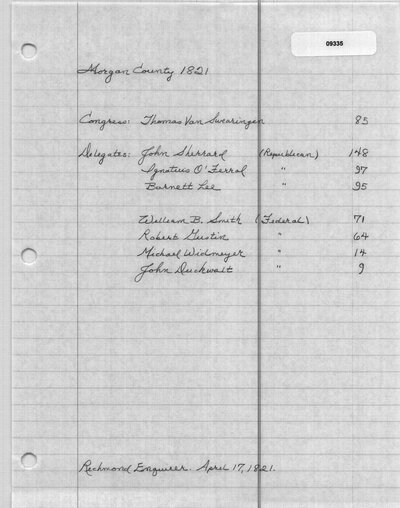 09335
Morgan County 1821
Congress: Thomas Van Swearingen 85
Delegates: John Sherrard (Republican) 148
Ignatius O'Ferral " 97
Barnett Lee " 95
William B. Smith (Federal) 71
Robert Gustin " 64
Michael Widmeyer " 14
John Duckwait " 9
Richmond Enquirer. April 17, 1821.